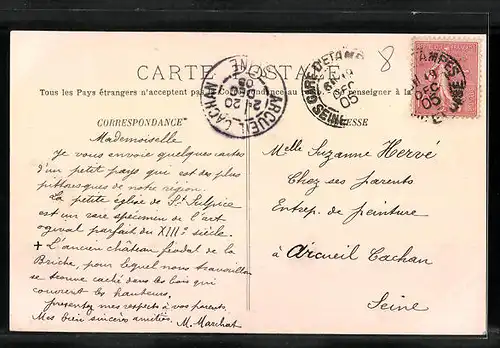 CARTE POSTALE
Tous les Pays étrangers n'acceptent pas la Correspondance au
à la
CORRESPONDANCE
ADRESSE
GARE D'ETAMPES
SEINE
19
DEC
05
ETAMPES
19
DEC
05
ARCUEIL-CACHAN
20
DEC
05
SEINE
8
Mademoiselle
Je vous envoie quelques cartes
d'un petit pays qui est des plus
pittoresques de notre région.
La petite église de St Sulpice
est un rare spécimen de l'art
ogival parfait du XIIIe siècle.
+ L'ancien château féodal de la
Briche, pour lequel nous travaillons
se trouve caché dans les bois qui
couvrent les hauteurs.
presentez mes respects à vos parents.
Mes bien sincères amitiés.
M. Marchat
Melle Suzanne Hervé
Chez ses parents
Entrep. de peinture
à Arcueil Cachan
Seine